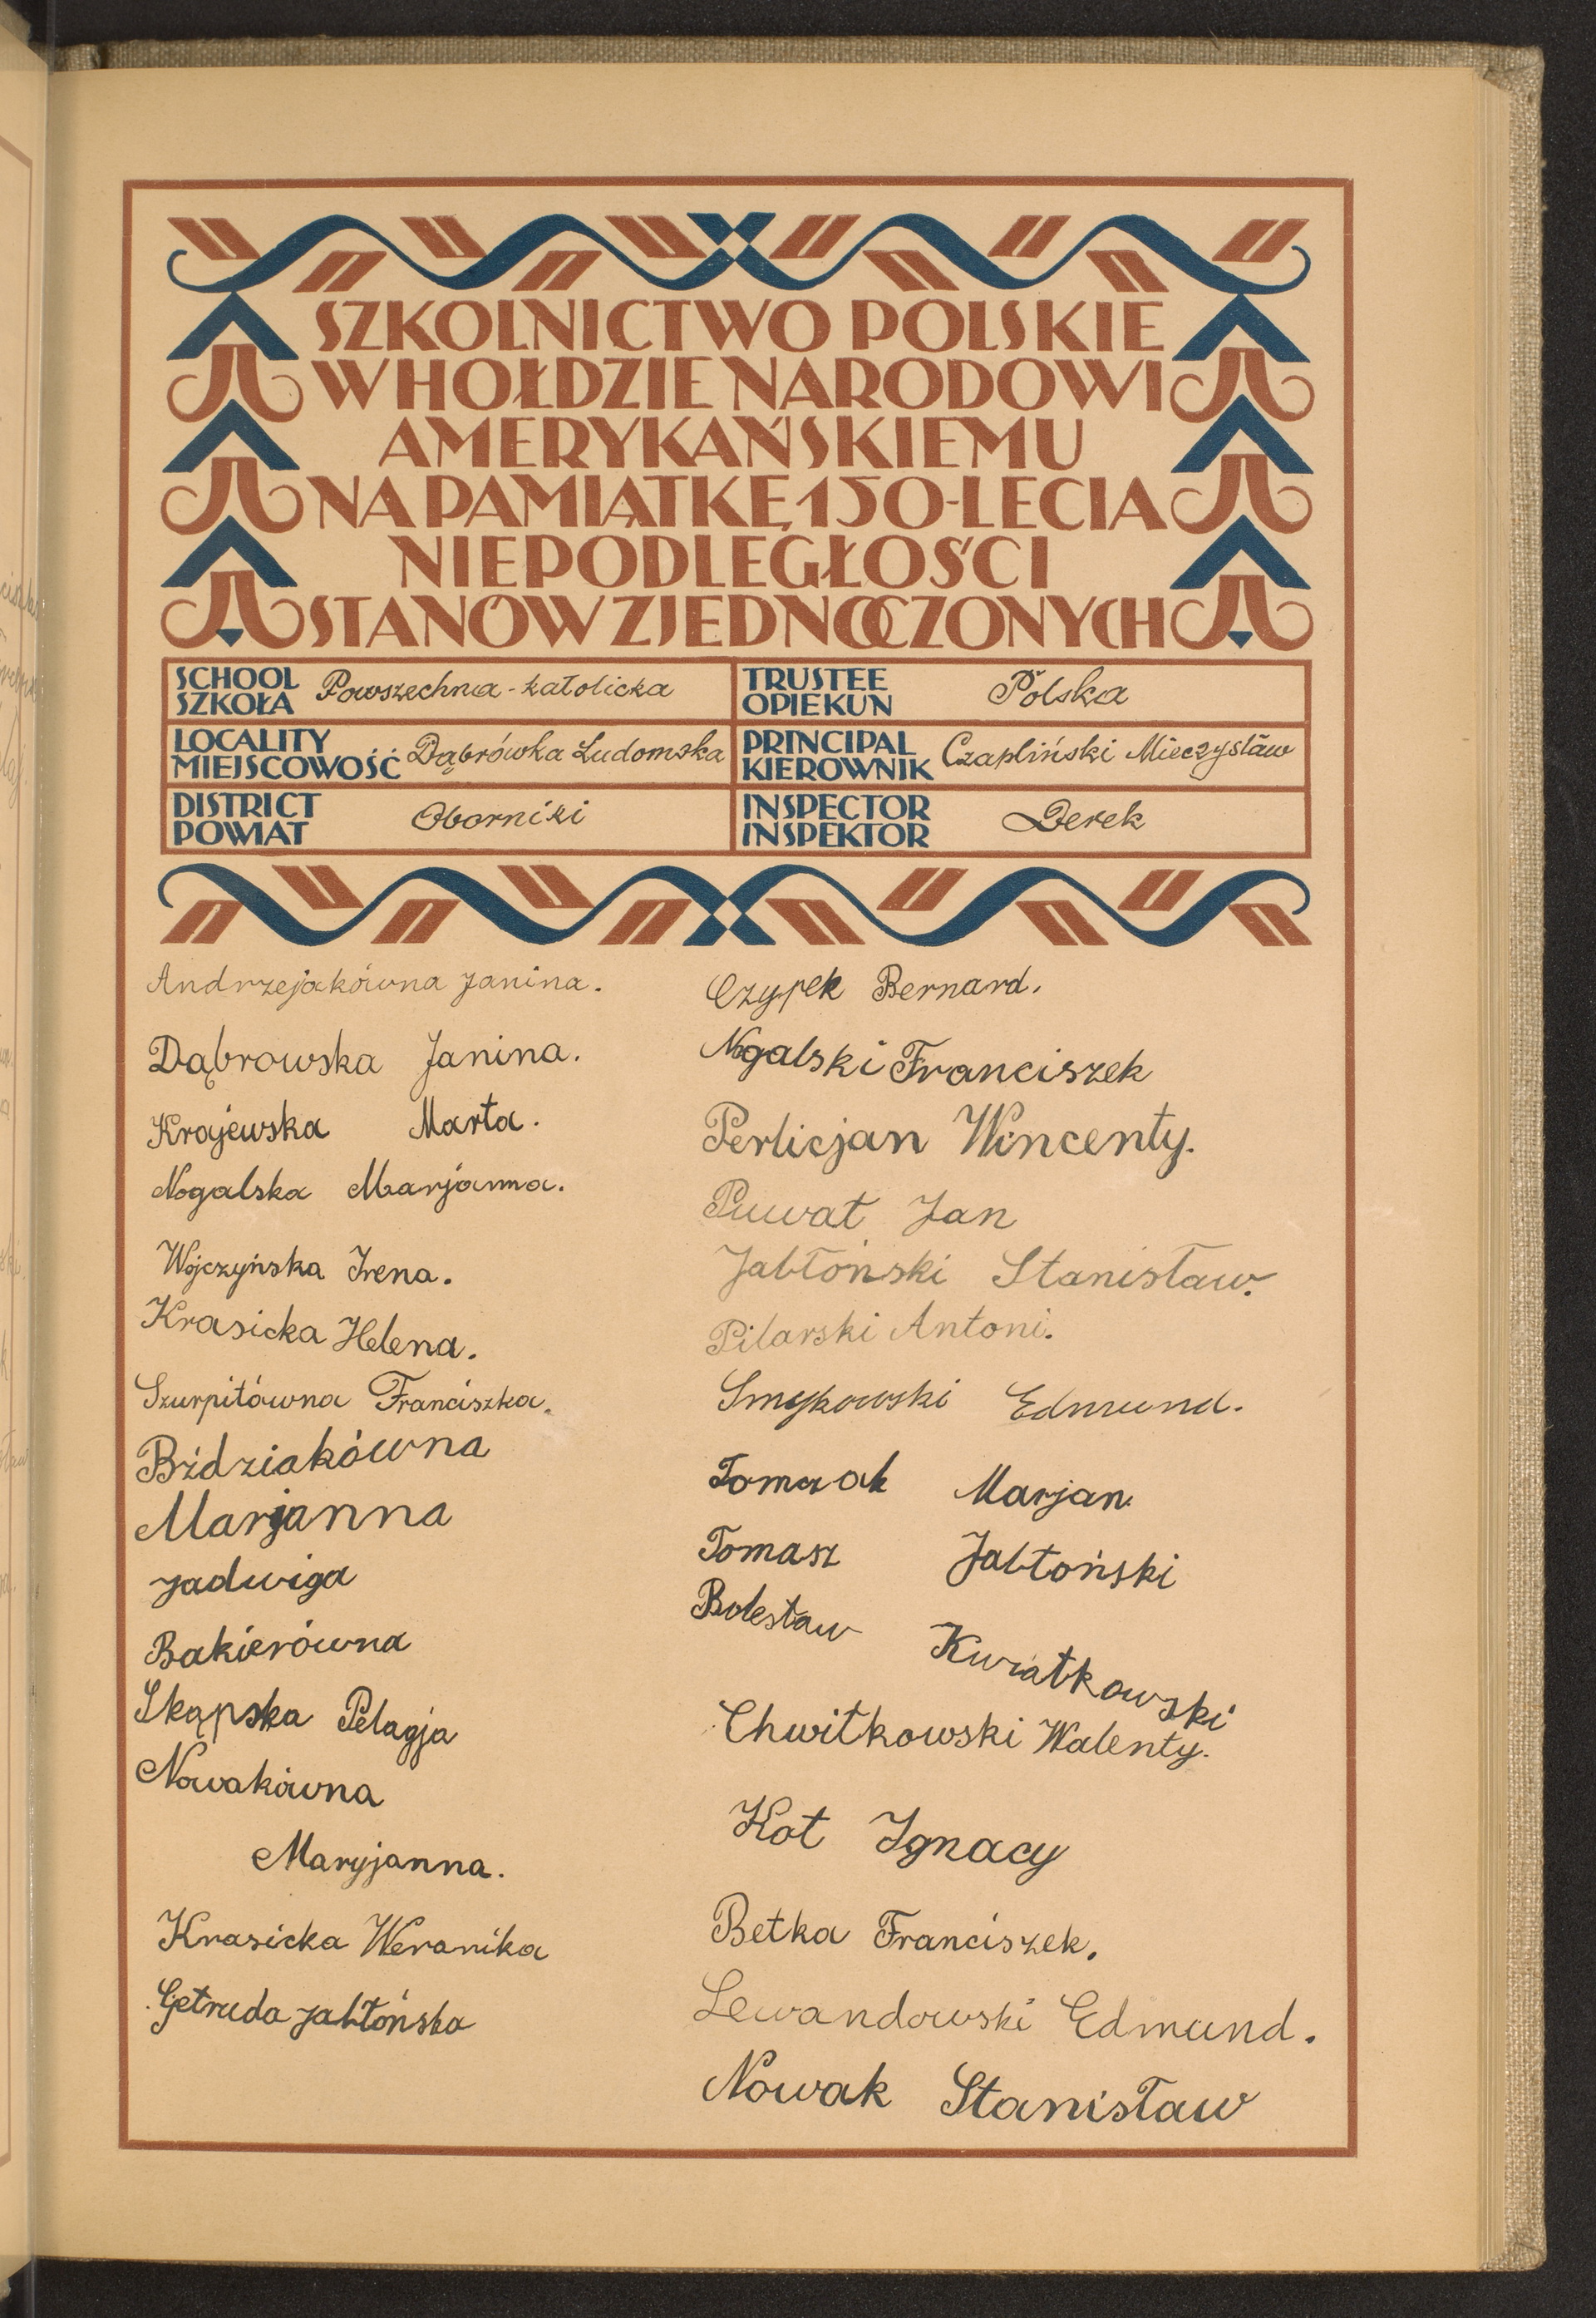 SZKOLNICTWO POLSKIE
W HOŁDZIE NARODOWI
AMERYKAŃSKIEMU
NA PAMIĄTKĘ 150-LECIA
NIEPODLEGŁOŚCI
STANÓW ZJEDNOCZONYCH
SCHOOL
SZKOŁA
Powszechna - katolicka
TRUSTEE
OPIEKUN
Polska
LOCALITY
MIEJSCOWOŚĆ
Dąbrówka Ludomska
PRINCIPAL
KIEROWNIK
Czapliński Mieczysław
DISTRICT
POWIAT
Oborniki
INSPECTOR
INSPEKTOR
Derek
Andrzejakówna Janina.
Dąbrowska Janina.
Krajewska Marta.
Nogalska Marjanna.
Wójczyńska Irena.
Krasicka Helena.
Szurpitówna Franciszka.
Bździakówna
Marjanna
Jadwiga
Bakierówna
Skąpska Pelagja
Nowakówna
Maryjanna.
Krasicka Weronika
Getruda Jabłońska
Czypek Bernard.
Nogalski Franciszek
Perlicjan Wincenty.
Puwat Jan
Jabłoński Stanisław.
Pilarski Antoni.
Smykowski Edmund.
Marjan.
Tomasz Jabłoński
Bolesław Kwiatkowski
Chwitkowski Walenty.
Kot Ignacy
Betka Franciszek.
Lewandowski Edmund.
Nowak Stanisław